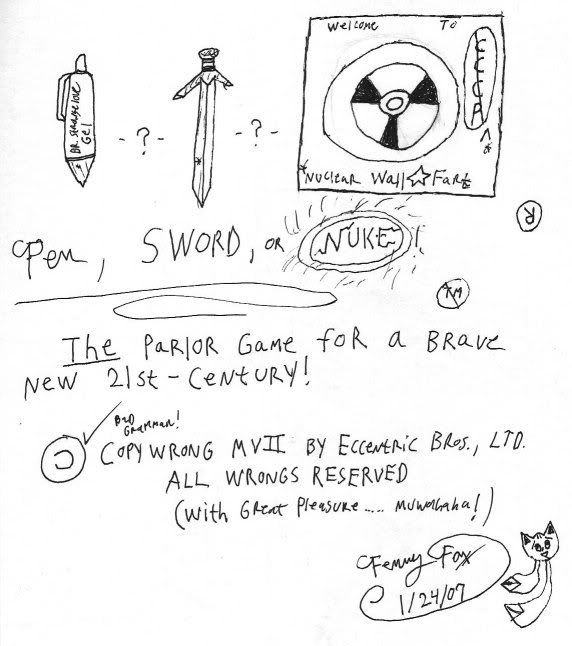 Welcome To
CCCR
DR. Strangelove
Gel
- ? -
- ? -
*Nuclear Wall☆Fare
R
Pen, SWORD, OR NUKE!
TM
The Parlor Game for a Brave
New 21st-Century!
Bad
Grammar!
Copywrong MVII by Eccentric Bros., LTD.
ALL WRONGS RESERVED
(With Great Pleasure..... Muwahaha!)
Fenny Fox
1/24/07